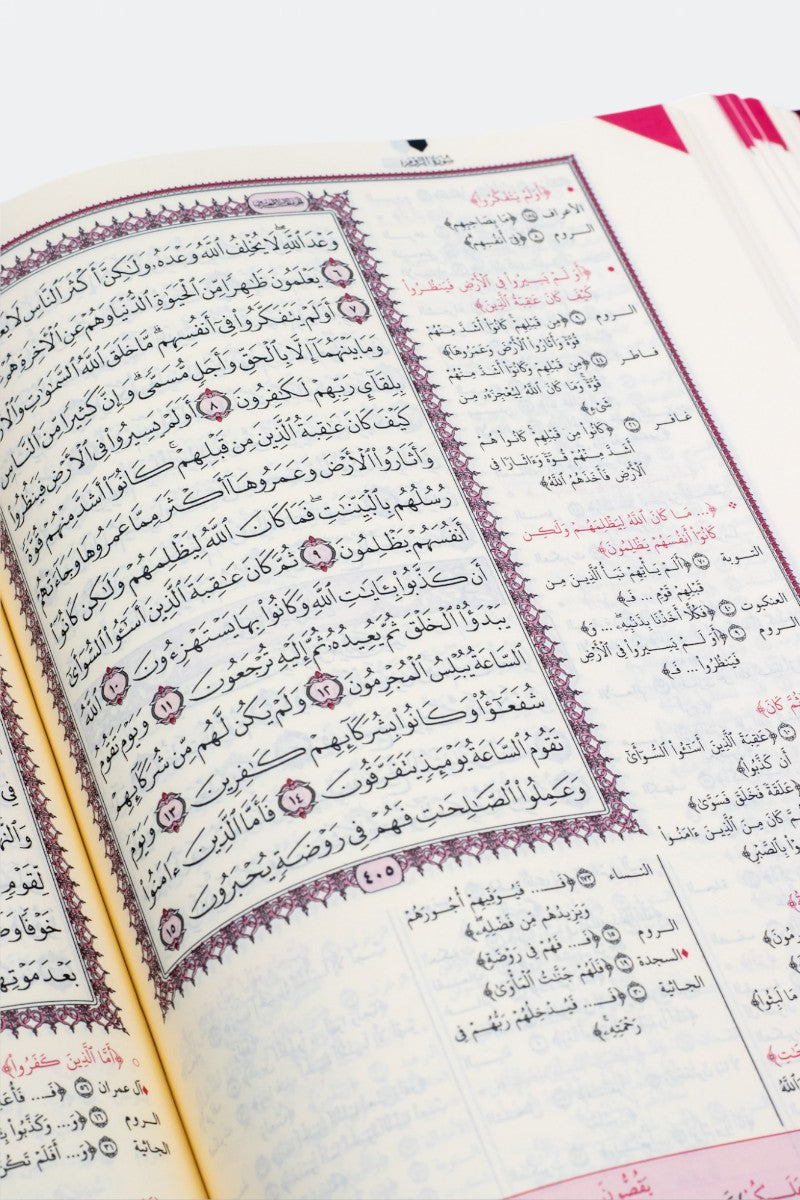 سورة الروم
وَعْدَ ٱللَّهِ لَا يُخْلِفُ ٱللَّهُ وَعْدَهُۥ وَلَٰكِنَّ أَكْثَرَ ٱلنَّاسِ لَا
٦ يَعْلَمُونَ ظَٰهِرًا مِّنَ ٱلْحَيَوٰةِ ٱلدُّنْيَا وَهُمْ عَنِ ٱلْءَاخِرَةِ
٧ أَوَلَمْ يَتَفَكَّرُوا۟ فِىٓ أَنفُسِهِم مَّا خَلَقَ ٱللَّهُ ٱلسَّمَٰوَٰتِ
وَمَا بَيْنَهُمَآ إِلَّا بِٱلْحَقِّ وَأَجَلٍ مُّسَمًّى وَإِنَّ كَثِيرًا مِّنَ ٱلنَّاسِ
بِلِقَآئِ رَبِّهِمْ لَكَٰفِرُونَ ٨ أَوَلَمْ يَسِيرُوا۟ فِى ٱلْأَرْضِ فَيَنظُرُوا۟
كَيْفَ كَانَ عَٰقِبَةُ ٱلَّذِينَ مِن قَبْلِهِمْ كَانُوٓا۟ أَشَدَّ مِنْهُمْ قُوَّةً
وَأَثَارُوا۟ ٱلْأَرْضَ وَعَمَرُوهَآ أَكْثَرَ مِمَّا عَمَرُوهَا وَجَآءَتْهُمْ
رُسُلُهُم بِٱلْبَيِّنَٰتِ فَمَا كَانَ ٱللَّهُ لِيَظْلِمَهُمْ وَلَٰكِن كَانُوٓا۟
أَنفُسَهُمْ يَظْلِمُونَ ٩ ثُمَّ كَانَ عَٰقِبَةَ ٱلَّذِينَ أَسَٰٓـُٔوا۟ ٱلسُّوٓأَىٰٓ
أَن كَذَّبُوا۟ بِـَٔايَٰتِ ٱللَّهِ وَكَانُوا۟ بِهَا يَسْتَهْزِءُونَ ١٠ ٱللَّهُ
يَبْدَؤُا۟ ٱلْخَلْقَ ثُمَّ يُعِيدُهُۥ ثُمَّ إِلَيْهِ تُرْجَعُونَ ١١ وَيَوْمَ تَقُومُ
ٱلسَّاعَةُ يُبْلِسُ ٱلْمُجْرِمُونَ ١٢ وَلَمْ يَكُن لَّهُم مِّن شُرَكَآئِهِمْ
شُفَعَٰٓؤُا۟ وَكَانُوا۟ بِشُرَكَآئِهِمْ كَٰفِرِينَ ١٣ وَيَوْمَ
تَقُومُ ٱلسَّاعَةُ يَوْمَئِذٍ يَتَفَرَّقُونَ ١٤ فَأَمَّا ٱلَّذِينَ ءَامَنُوا۟
وَعَمِلُوا۟ ٱلصَّٰلِحَٰتِ فَهُمْ فِى رَوْضَةٍ يُحْبَرُونَ ١٥
٤٠٥
﴿أَوَلَمْ يَتَفَكَّرُوا۟﴾
الأعراف ﴿مَا بِصَاحِبِهِم﴾
الروم ﴿فِىٓ أَنفُسِهِم﴾
﴿أَوَلَمْ يَسِيرُوا۟ فِى ٱلْأَرْضِ فَيَنظُرُوا۟
كَيْفَ كَانَ عَٰقِبَةُ ٱلَّذِينَ﴾
الروم ٩ ﴿مِن قَبْلِهِمْ كَانُوٓا۟ أَشَدَّ مِنْهُمْ
قُوَّةً وَأَثَارُوا۟ ٱلْأَرْضَ وَعَمَرُوهَآ﴾
فاطر ﴿مِن قَبْلِهِمْ وَكَانُوٓا۟ أَشَدَّ مِنْهُمْ
قُوَّةً وَمَا كَانَ ٱللَّهُ لِيُعْجِزَهُۥ مِن
شَىْءٍ﴾
غافر ﴿كَانُوا۟ مِن قَبْلِهِمْ كَانُوا۟ هُمْ
أَشَدَّ مِنْهُمْ قُوَّةً وَءَاثَارًا فِى
ٱلْأَرْضِ فَأَخَذَهُمُ ٱللَّهُ﴾
﴿... مَا كَانَ ٱللَّهُ لِيَظْلِمَهُمْ وَلَٰكِن
كَانُوٓا۟ أَنفُسَهُمْ يَظْلِمُونَ﴾
التوبة ﴿أَلَمْ يَأْتِهِمْ نَبَأُ ٱلَّذِينَ مِن
قَبْلِهِمْ قَوْمِ ... فَـ﴾
العنكبوت ﴿فَكُلًّا أَخَذْنَا بِذَنۢبِهِۦ ... وَ﴾
الروم ٩ ﴿أَوَلَمْ يَسِيرُوا۟ فِى ٱلْأَرْضِ
فَيَنظُرُوا۟ ... فَـ﴾
كَانَ﴾
﴿عَٰقِبَةَ ٱلَّذِينَ أَسَٰٓـُٔوا۟ ٱلسُّوٓأَىٰٓ
أَن كَذَّبُوا۟﴾
عَلَقَةً فَخَلَقَ فَسَوَّىٰ﴾
كَانَ مِنَ ٱلَّذِينَ ءَامَنُوا۟
بِٱلصَّبْرِ﴾
النساء ١٧٣ ﴿فَـ... فَيُوَفِّيهِمْ أُجُورَهُمْ
وَيَزِيدُهُم مِّن فَضْلِهِۦ﴾
الروم ١٥ ﴿فَـ... فَهُمْ فِى رَوْضَةٍ﴾
السجدة ١٩ ﴿فَلَهُمْ جَنَّٰتُ ٱلْمَأْوَىٰ﴾
الجاثية ٣٠ ﴿فَـ... فَيُدْخِلُهُمْ رَبُّهُمْ فِى
رَحْمَتِهِۦ﴾
لِقَوْمٍ
خَوْفًا
بَعْدَ مَوْتِهَا
﴿أَمَّا ٱلَّذِينَ كَفَرُوا۟﴾
آل عمران ٥٦ ﴿فَـ...
الروم ١٦ ﴿وَ... وَكَذَّبُوا۟
الجاثية ٣١ ﴿وَ... أَفَلَمْ تَكُنْ